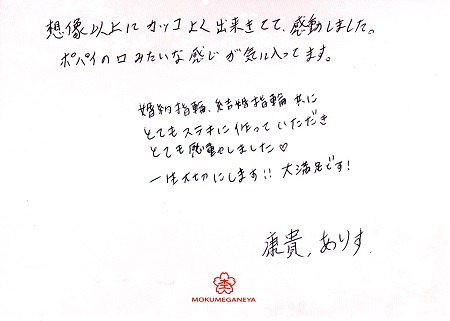 想像以上にカッコよく出来てて、感動しました。
ポパイの口みたいな感じが気に入ってます。
婚約指輪、結婚指輪共に
とてもステキに作っていただき
とても感動しました♡
一生大切にします!! 大満足です!
康貴、ありす
MOKUMEGANEYA